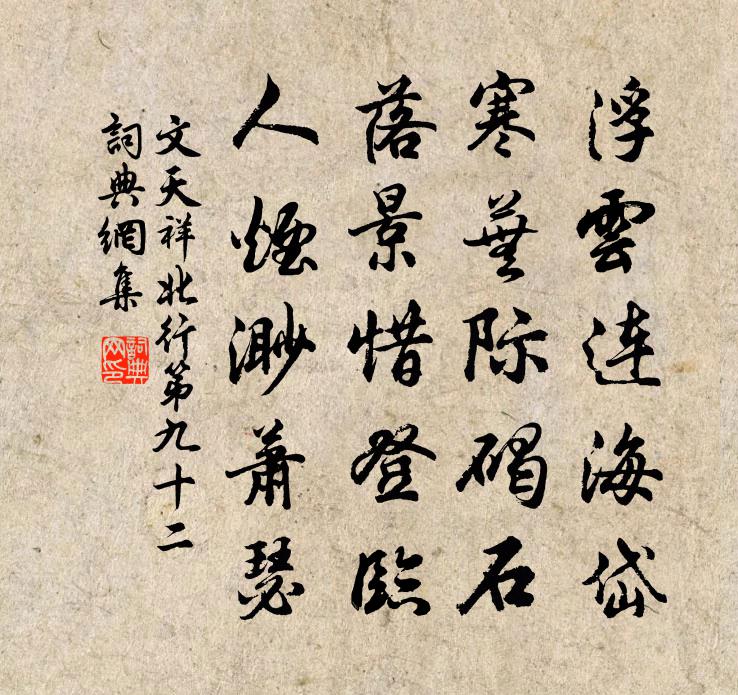 浮雲連海岱
寒蕪際碣石
落景惜登臨
人煙渺蕭瑟
文天祥北行第九十二
詞典網集
詞典网印